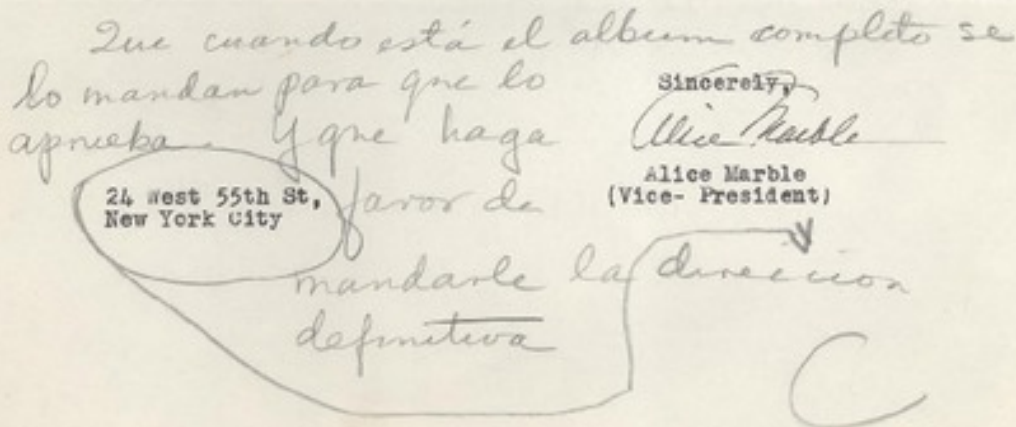 Que cuando está el album completo se
lo mandan para que lo
aprueba. Y que haga
favor de
mandarle la direccion
definitiva
Sincerely,
Alice Marble
Alice Marble
(Vice- President)
24 West 55th St,
New York City
C